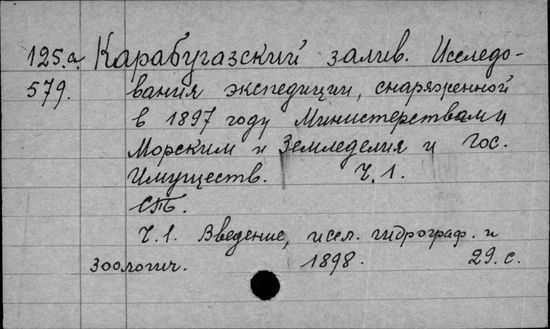 125.а. Карабугазский залив. Исследо-
579. вания экспедиции, снаряженной
в 1897 году Министерствами
Морским и Земледелия и Гос.
Имуществ. Ч. 1.
СПб.
Ч. 1. Введение, иссл. гидрограф. и
зоологич. 1898. 29. с.